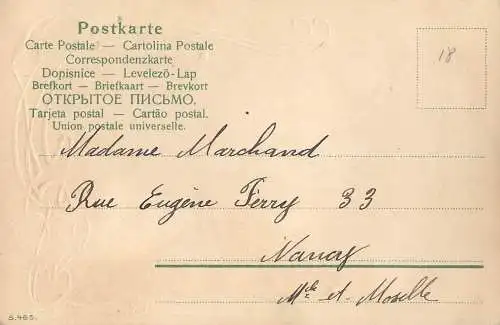 Postkarte
Carte Postale — Cartolina Postale
Correspondenzkarte
Dopisnice — Levelező-Lap
Brefkort — Briefkaart — Brevkort
ОТКРЫТОЕ ПИСЬМО.
Tarjeta postal — Cartão postal.
Union postale universelle.
18
Madame Marchand
Rue Eugène Ferry 33
Nancy
Mthe et-Moselle
S.465.